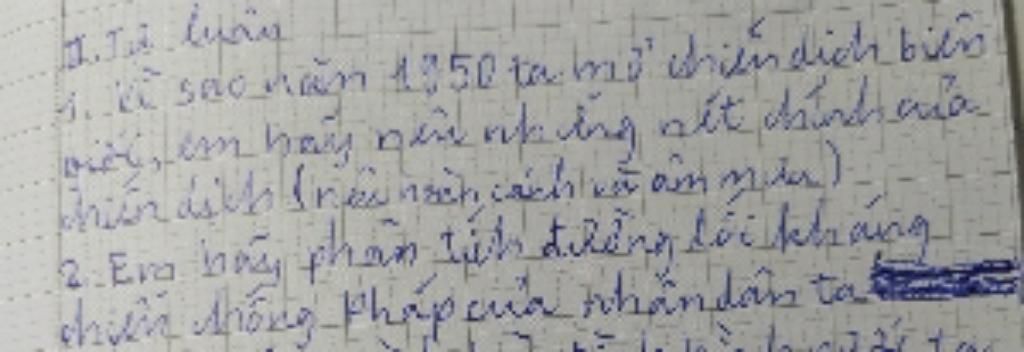 II. Tự luận
1. Vì sao năm 1950 ta mở chiến dịch biên
giới, em hãy nêu những nét chính của
chiến dịch (nêu hoàn cảnh và âm mưu)
2. Em hãy phân tích đường lối kháng
chiến chống Pháp của nhân dân ta